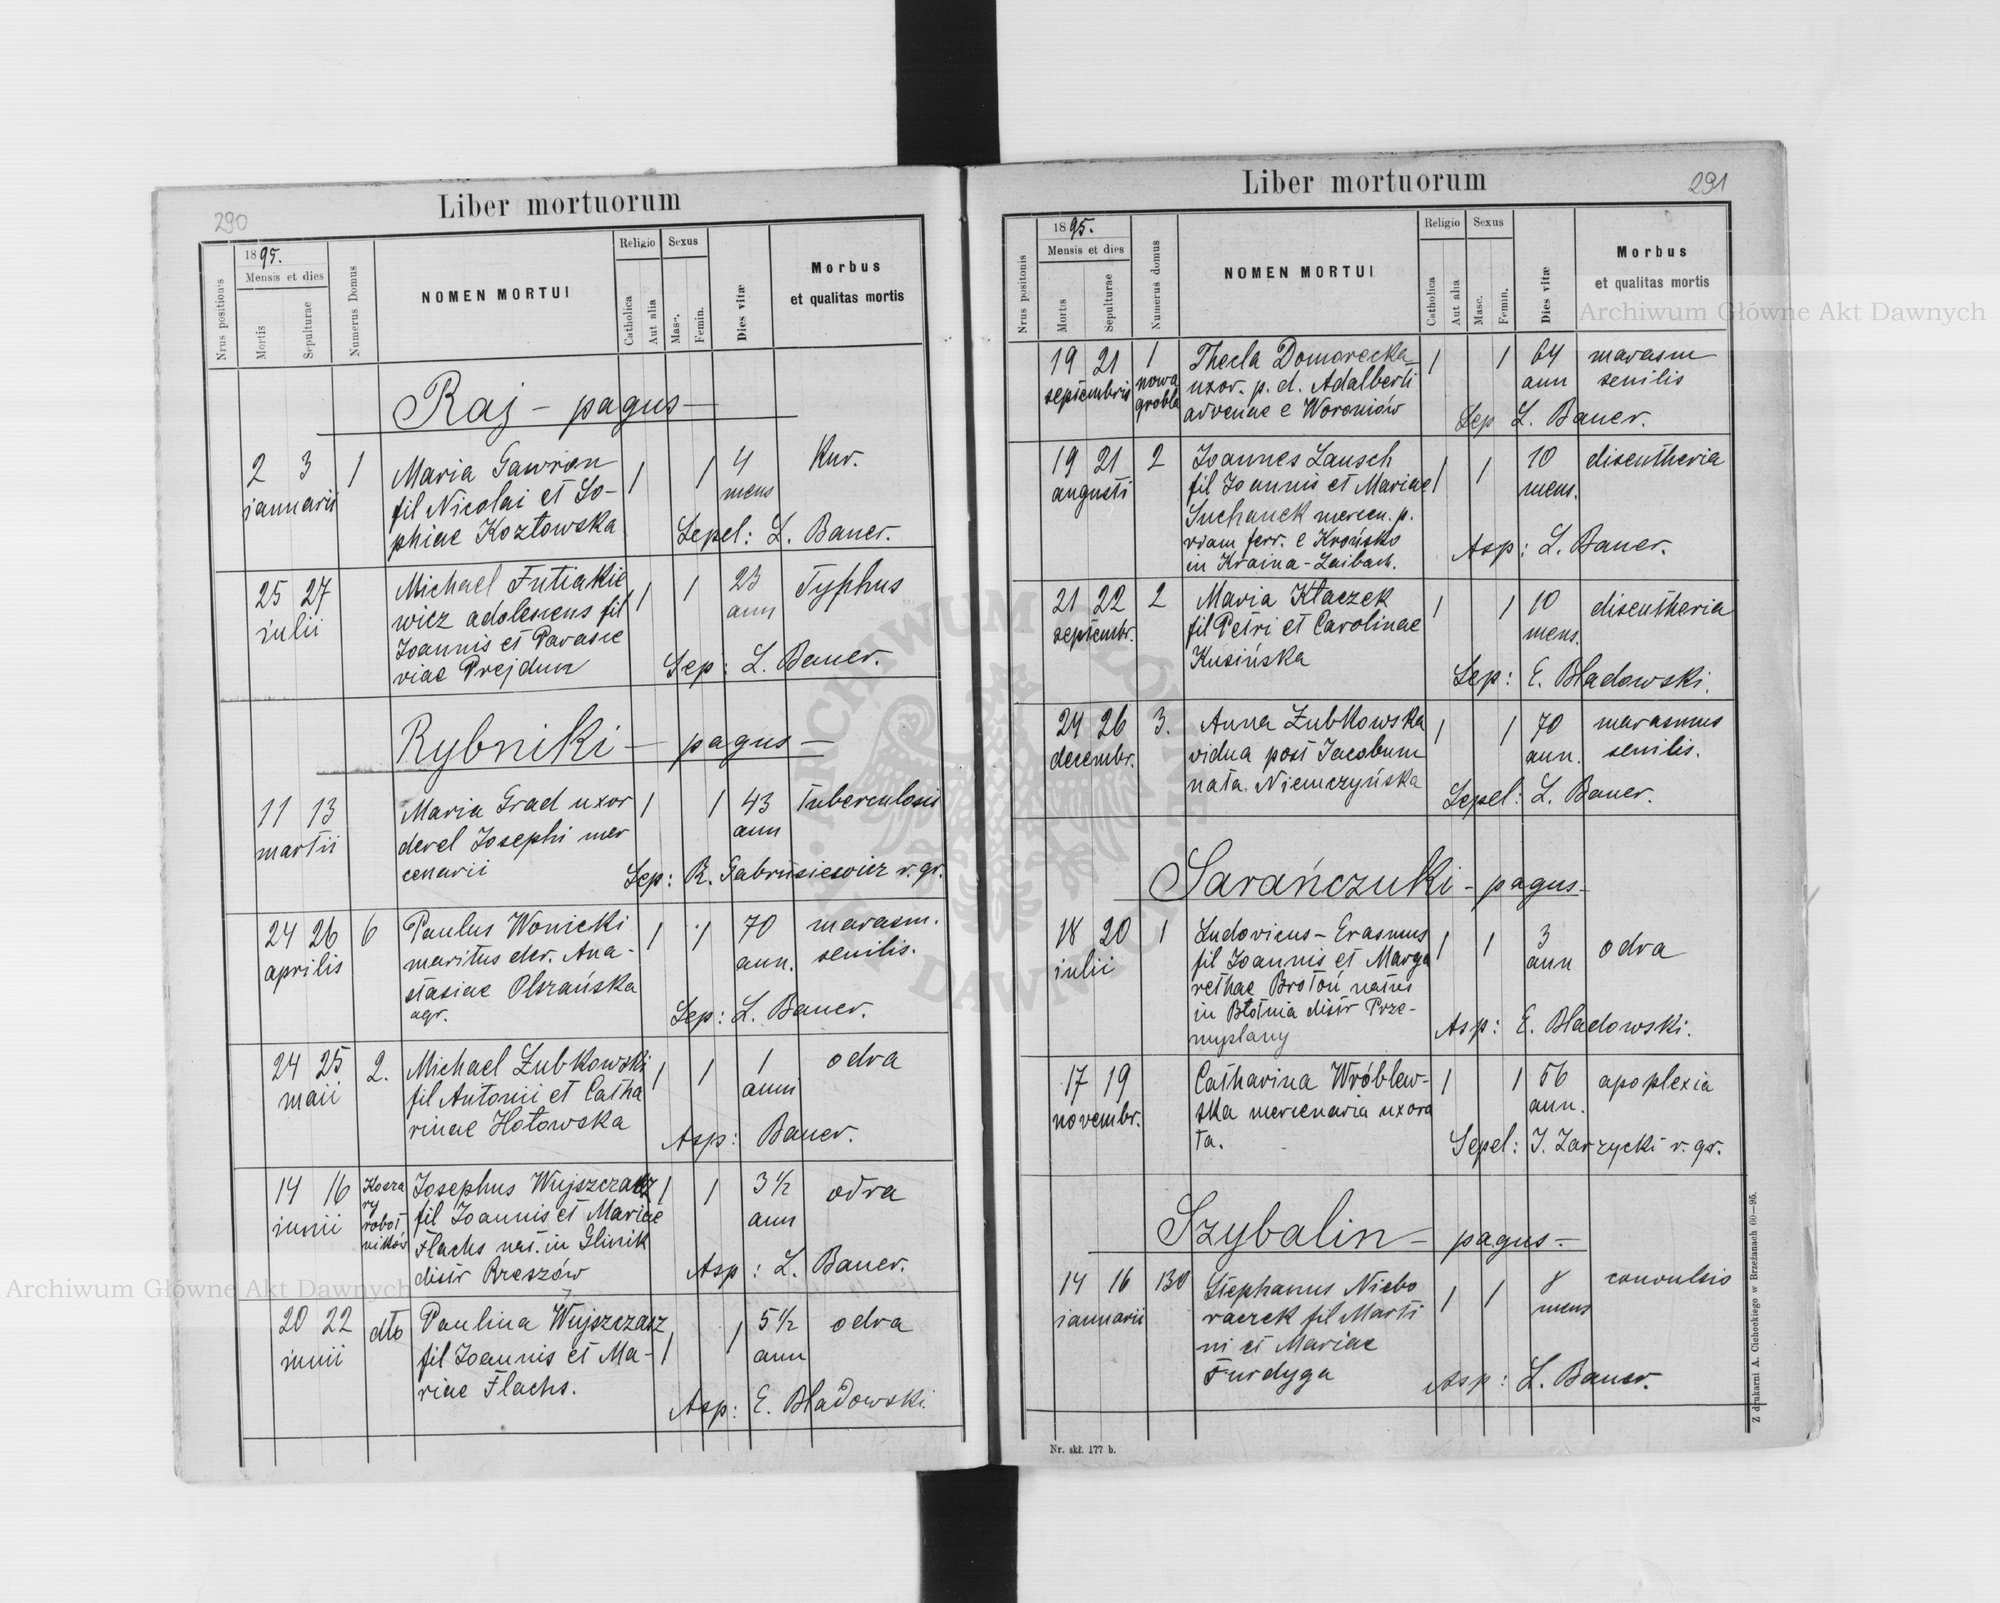 290
Liber mortuorum
Nrus positionis
1895.
Mensis et dies
Mortis
Sepulturae
Numerus Domus
NOMEN MORTUI
Religio
Catholica
Aut alia
Sexus
Masc.
Femin.
Dies vitæ
Morbus
et qualitas mortis
Raj - pagus -
2 3 1 Maria Gawron 1 1 4 Kur.
januarii fil Nicolai et So- mens
phiae Kozłowska Sepel: L. Bauer.
25 27 Michael Futiakie 1 1 23 Typhus
iulii wicz adolescens fil ann
Joannis et Parasce
viae Prejdun Sep: L. Bauer.
Rybniki - pagus -
11 13 Maria Grad uxor 1 1 43 tuberculosis
martii derel Josephi mer ann
cenarii Sep: R. Gabrusiewicz r. gr.
24 26 6 Paulus Wonicki 1 1 70 marasm.
aprilis maritus der. Ana- ann. senilis.
stasiae Olszańska
agr. Sep: L. Bauer.
24 25 2. Michael Zubkowski 1 1 1 odra
maii fil Antonii et Catha anni
rinae Hołowska Asp: Bauer.
14 16 Kosza Josephus Wujszczasz 1 1 3 1/2 odra
iunii ry fil Joannis et Mariae ann
robot Flachs nat. in Glinik
ników distr Rzeszów Asp: L. Bauer.
20 22 dto Paulina Wujszczasz 1 1 5 1/2 odra
iunii fil Joannis et Ma- ann
riae Flachs. Asp: E. Bladowski
291
Liber mortuorum
Nrus positonis
1895.
Mensis et dies
Mortus
Sepulturae
Numerus domus
NOMEN MORTUI
Religio
Catholica
Aut alia
Sexus
Masc.
Femin.
Dies vitæ
Morbus
et qualitas mortis
19 21 1 Thecla Domorecka 1 1 64 marasm
septembris nowa uxor. p. d. Adalberti ann senilis
grobla advenae e Woroniów Sep L. Bauer.
19 21 2 Joannes Lausch 1 1 10 disentheria
augusti fil Joannis et Mariae mens.
Suchanek mercen. p.
viam ferr. e Krońsko Asp: L. Bauer.
in Kraina - Laibach.
21 22 2 Maria Kłaczek 1 1 10 disentheria
septembr. fil Petri et Carolinae mens.
Kusińska Sep: E. Bladowski.
24 26 3. Anna Zubkowska 1 1 70 marasmus
decembr. vidua post Jacobum ann. senilis.
nata Niemczyńska Sepel: L. Bauer.
Sarańczuki - pagus -
18 20 1 Ludovicus - Erasmus 1 1 3 odra
iulii fil Joannis et Marga ann
rethae Brotoń natus
in Błotnia distr Prze- Asp: E. Bladowski.
myslany
17 19 Catharina Wróblew- 1 1 56 apoplexia
novembr. ska mercenaria uxora ann.
ta. Sepel: J. Zarzycki r. gr.
Szybalin - pagus -
14 16 130 Stephanus Niebo 1 1 8 convulsio
januarii raczek fil Marti mens
ni et Mariae
Furdyga Asp: L. Bauer.
Nr. skł. 177 b.
Z drukarni A. Cichockiego w Brzeżanach 60—95.
Archiwum Główne Akt Dawnych
Archiwum Główne Akt Dawnych
ARCHIWUM GŁÓWNE AKT DAWNYCH